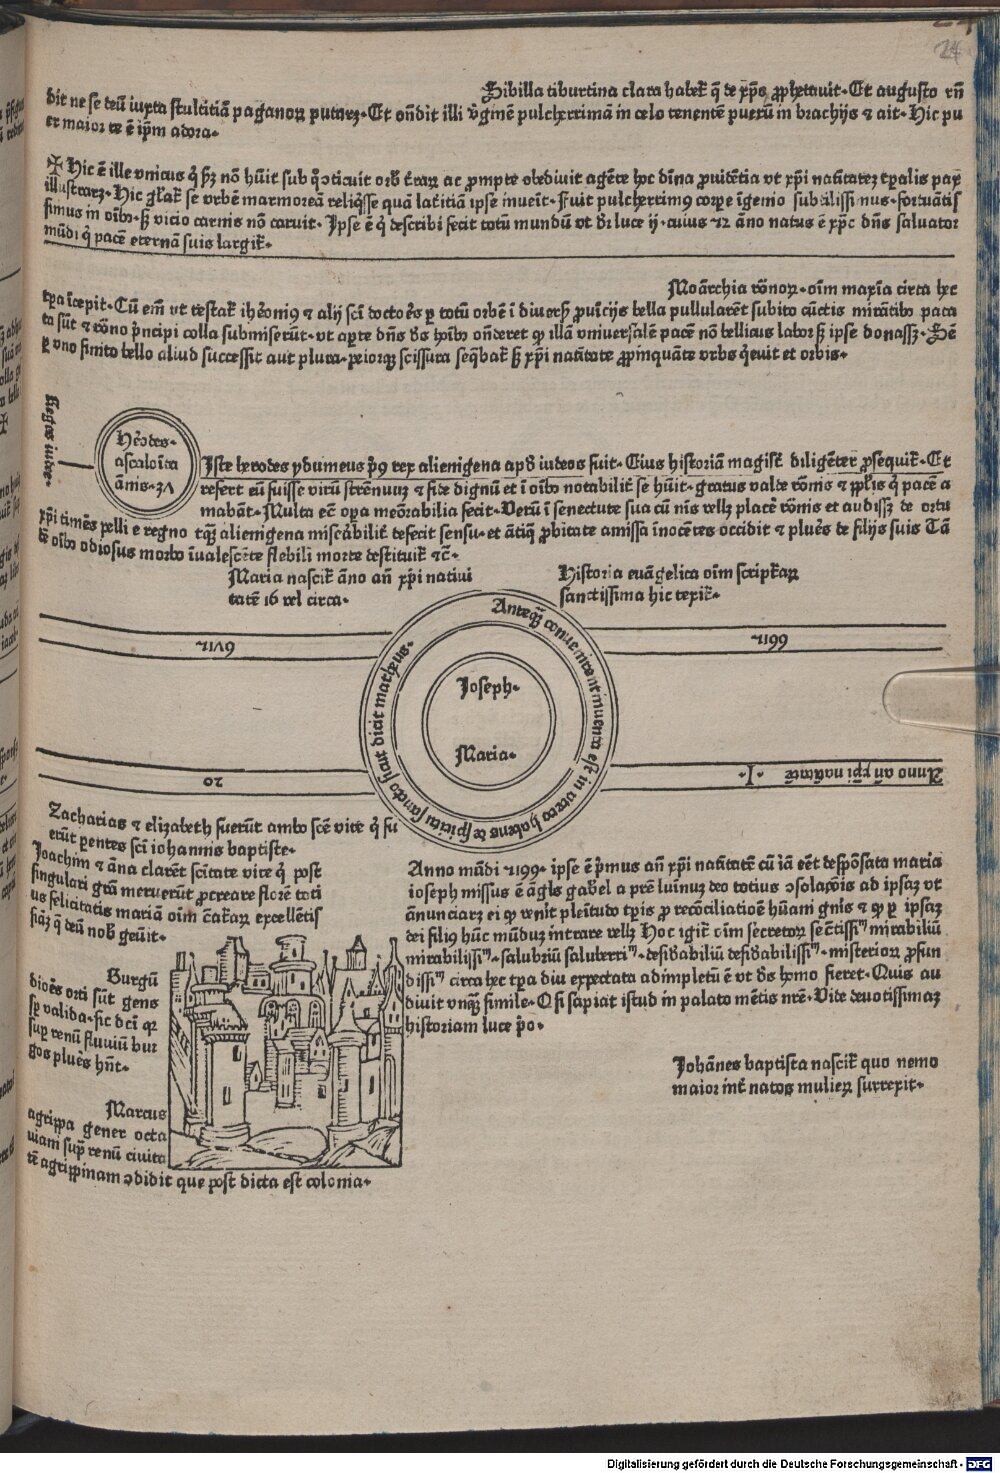 24
Sibilla tiburtina clara habet᷑ q̃ de xp̃o ꝓphetauit· Et augusto rñ
dit ne se deũ iuxta stultitiã paganoꝝ putarꝫ· Et oñdit illi v̓gĩnẽ pulcherrimã in celo tenentẽ puerũ in brachijs ⁊ ait· Hic pu
er maior te ẽ ip̃m adora·
✠ Hic ẽ ille vnicus q̓ hꝫ nõ huit sub q̊ ꝯticuit orb̓ ac prompte obediuit agẽte hoc diĩna ꝓuidẽtia vt xp̃i natitatẽ tp̃alis pax
illustrarꝫ· Hic gl̓at᷑ se vrbẽ marmoreã reliq̃sse quã latitiã ipse inueit· Fuit pulcherrimꝰ corꝑe ĩgenio subtilissimus· fortuatis
simus in oĩbꝰ· sꝫ vicio carnis nõ caruit· Ipse ẽ q̓ describi fecit totũ mundũ vt dr̃ luce ij· cuius 42 ãno natus ẽ xp̃c dñs saluator
mũdi q̓ pacẽ eternã suis largit᷑·
Moãrchia rõnoꝝ· oĩm maxĩa circa hec
tp̃a ĩcepit· Cũ em̃ vt testat᷑ iherõimꝰ ⁊ alij scĩ doctoẽs ꝑ totũ orbẽ ĩ diuersꝭ ꝓuĩcijs bella pullularẽt subito cũctis mirãtibꝰ paca
ta sũt ⁊ rõno pñcipi colla submiserũt· vt aꝑte dñs dꝰ hoĩbꝰ oñderet ꝙ illã vniuersalẽ pacẽ nõ bellicus laborsꝫ ipse donassꝫ· Sẽ
ꝑ vno finito bello aliud successit aut plura· peiorqꝫ scissura seq̃bat᷑ sꝫ xp̃i natitate ꝓpinquãte vrbs q̓euit et orbis·
Reges iudee·
Her̓odes·
ascaloĩta
ãnis· 37
Iste herodes ydumeus p̓ꝰ rex alienigena apd̓ iudeos fuit· Cuius historiã magist᷑ diligẽter ꝓsequit᷑· Et
refert eũ fuisse virũ strẽnuuꝫ ⁊ fide dignũ et ĩ oĩbꝰ notabilit᷑ se huit· gratus valde rõnis ⁊ ppl̓is q̓ pacẽ a
mabãt· Multa eĩ oꝑa meõrabilia fecit· Verũ ĩ senectute sua cũ nĩs vellꝫ placẽ rõnis et audissꝫ de ortu
xp̃i timẽs pelli e regno tq̃ꝫ alienigena miserabilit᷑ defecit sensu· et ãtiq̃ ꝓbitate amissa ĩnocẽtes occidit ⁊ pluẽs de filijs suis Tã
dẽ oĩbꝰ odiosus morbo ĩualescẽte flebili morte destituit᷑ ⁊c̃·
Maria nascit᷑ ãno añ xp̃i natiui
tatẽ 16 vel circa·
Historia euãgelica oĩm scriptaꝝ
sanctissima hic texit᷑·
Anteq̃ꝫ conuenirent inuenta est in vtero habens de spiritu sancto haut dicit matheus·
Joseph·
Maria·
20
Anno añ xp̃i natitatẽ ·1·
Zacharias ⁊ elizabeth fuerũt ambo scẽ vite q̓ fu
erũt ꝑentes scĩ iohannis baptiste·
Joachim ⁊ ãna clarẽt scĩtate vite q̓ post
singulari grã meruerũt ꝓcreare florẽ toti
us felicitatis mariã oĩm excellẽtis
siãꝫ q̃ deũ nob̓ geũit·
Burgũ
dioẽs orti sũt gens
sꝑ valida· sic dc̃i qꝛ
suꝑ renũ fluuiũ bur
gos pluẽs hñt·
Marcus
agrippa gener octa
uiani suꝑ renũ ciuita
tẽ agrippinam ꝯdidit que post dicta est colonia·
Anno mũdi 4199· ipse ẽ p̓mus añ xp̃i natitatẽ cũ iã eẽt despõsata maria
ioseph missus ẽ ãgl̓s gab̓el a prẽ luminũ deo totius ꝯsolatõis ad ipsaꝫ vt
ãnunciarꝫ ei ꝙ venit plẽitudo tp̃is ꝓ recõciliatioẽ hũani gn̓is ⁊ ꝙ ꝑ ipsaꝫ
dei filiꝰ hũc mũduꝫ intrare vellꝫ Hoc igit᷑ oĩm secretoꝝ sc̃tissiᵐ mirabiliũ
mirabilissiᵐ· salubriũ saluberriᵐ· desid̓abiliũ desid̓abilissiᵐ· misterioꝝ ꝓfun
dissiᵐ circa hec tp̃a diu expectata adimpletũ ẽ vt dꝰ homo fieret· Quis au
diuit vnq̃ꝫ simile· O si sapiat istud in palato mẽtis nr̃e· Vide deuotissimaꝫ
historiam luce p̓o·
Johãnes baptista nascit᷑ quo nemo
maior int᷑ natos mulieꝝ surrexit·
Digitalisierung gefördert durch die Deutsche Forschungsgemeinschaft - DFG